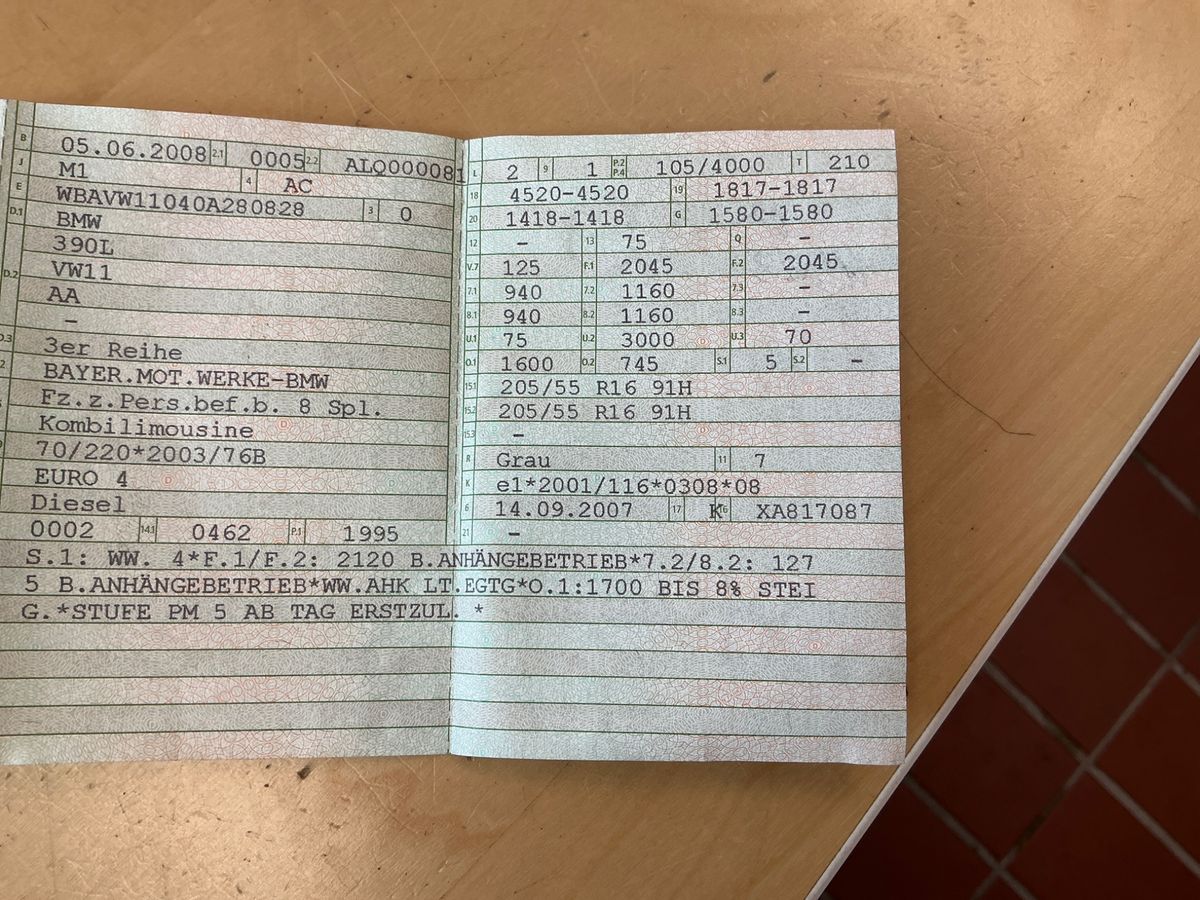 B 05.06.2008 2.1 0005 2.2 ALQ000081
J M1 4 AC
E WBAVW11040A280828 3 0
D.1 BMW
390L
D.2 VW11
AA
-
D.3 3er Reihe
2 BAYER.MOT.WERKE-BMW
5 Fz.z.Pers.bef.b. 8 Spl.
Kombilimousine
70/220*2003/76B
EURO 4
Diesel
0002 14.1 0462 P.1 1995
L 2 9 1 P.2 P.4 105/4000 T 210
18 4520-4520 19 1817-1817
20 1418-1418 G 1580-1580
12 - 13 75 Q -
V.7 125 F.1 2045 F.2 2045
7.1 940 7.2 1160 7.3 -
8.1 940 8.2 1160 8.3 -
U.1 75 U.2 3000 U.3 70
O.1 1600 O.2 745 S.1 5 S.2 -
15.1 205/55 R16 91H
15.2 205/55 R16 91H
15.3 -
R Grau 11 7
K e1*2001/116*0308*08
6 14.09.2007 17 K 16 XA817087
21 -
S.1: WW. 4*F.1/F.2: 2120 B.ANHÄNGEBETRIEB*7.2/8.2: 127
5 B.ANHÄNGEBETRIEB*WW.AHK LT.EGTG*O.1:1700 BIS 8% STEI
G.*STUFE PM 5 AB TAG ERSTZUL. *